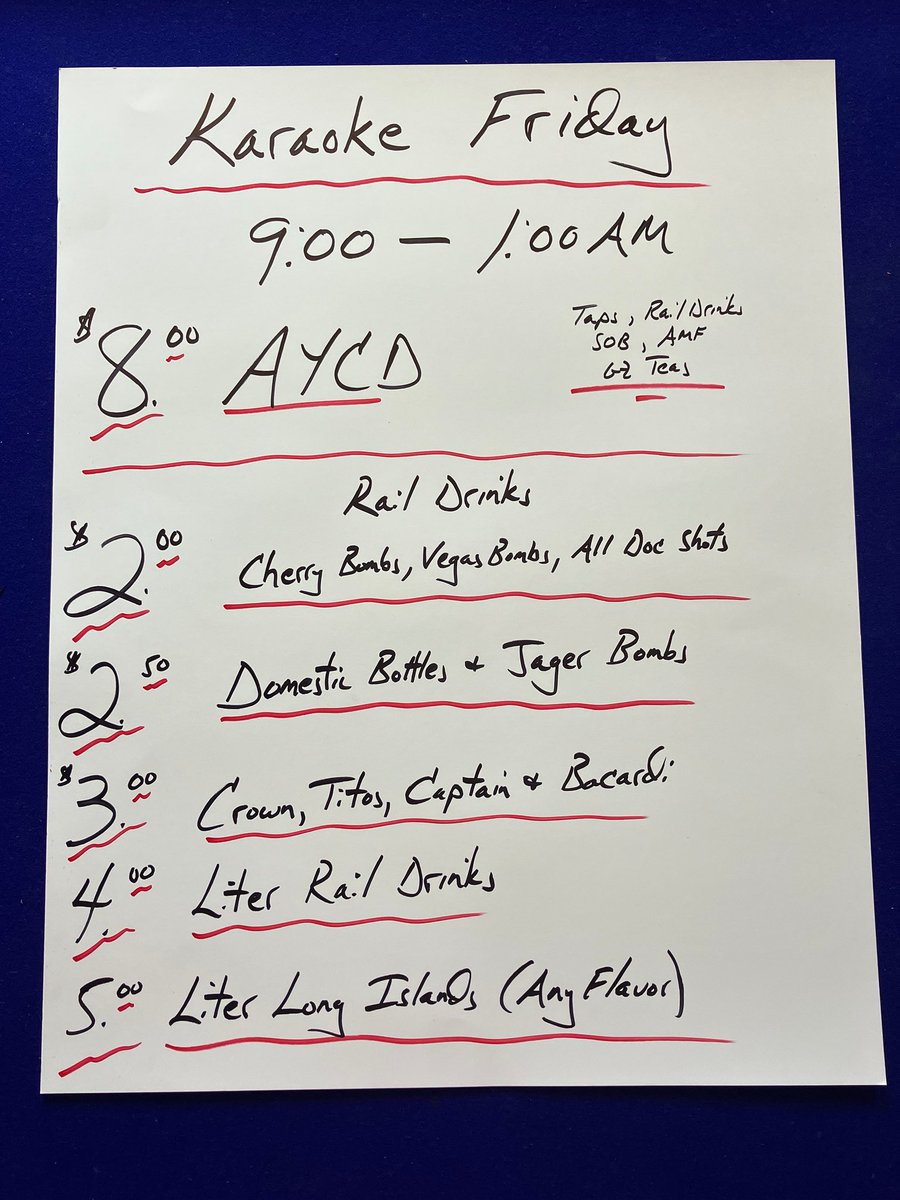 Karaoke Friday
9:00 — 1:00 AM
$8.00 AYCD
Taps, Rail Drinks
SOB, AMF
GZ Teas
Rail Drinks
$2.00 Cherry Bombs, Vegas Bombs, All Doc Shots
$2.50 Domestic Bottles & Jager Bombs
$3.00 Crown, Titos, Captain & Bacardi
4.00 Liter Rail Drinks
5.00 Liter Long Islands (Any Flavor)